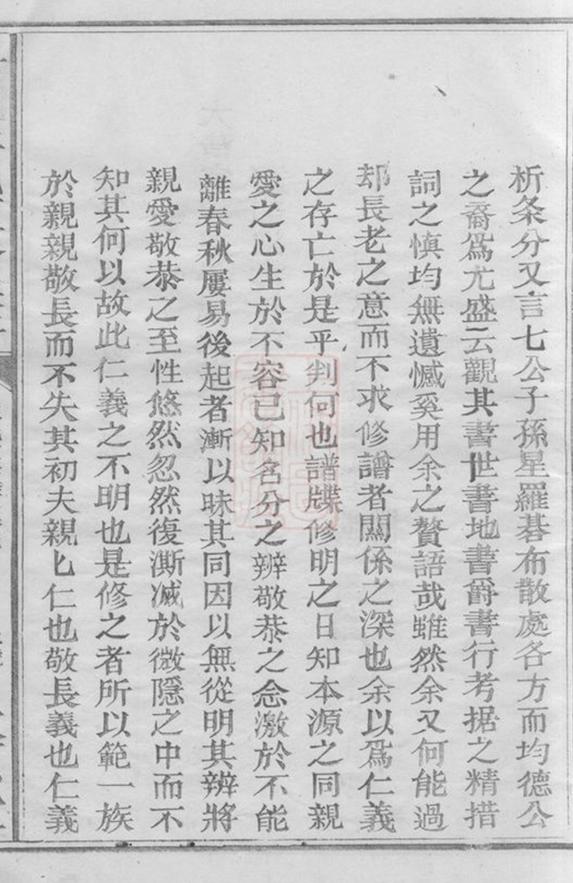 析条分又言七公子孫星羅碁布散處各方而均德公
之裔爲尤盛云觀其書世書地書爵書行考据之精措
詞之慎均無遺憾奚用余之贅語哉雖然余又何能過
却長老之意而不求修譜者關係之深也余以爲仁義
之存亡於是乎判何也譜牒修明之日知本源之同親
愛之心生於不容已知名分之辨敬恭之念激於不能
離春秋屢易後起者漸以昧其同因以無從明其辨將
親愛敬恭之至性悠然忽然復澌滅於微隱之中而不
知其何以故此仁義之不明也是修之者所以範一族
於親親敬長而不失其初夫親匕仁也敬長義也仁義